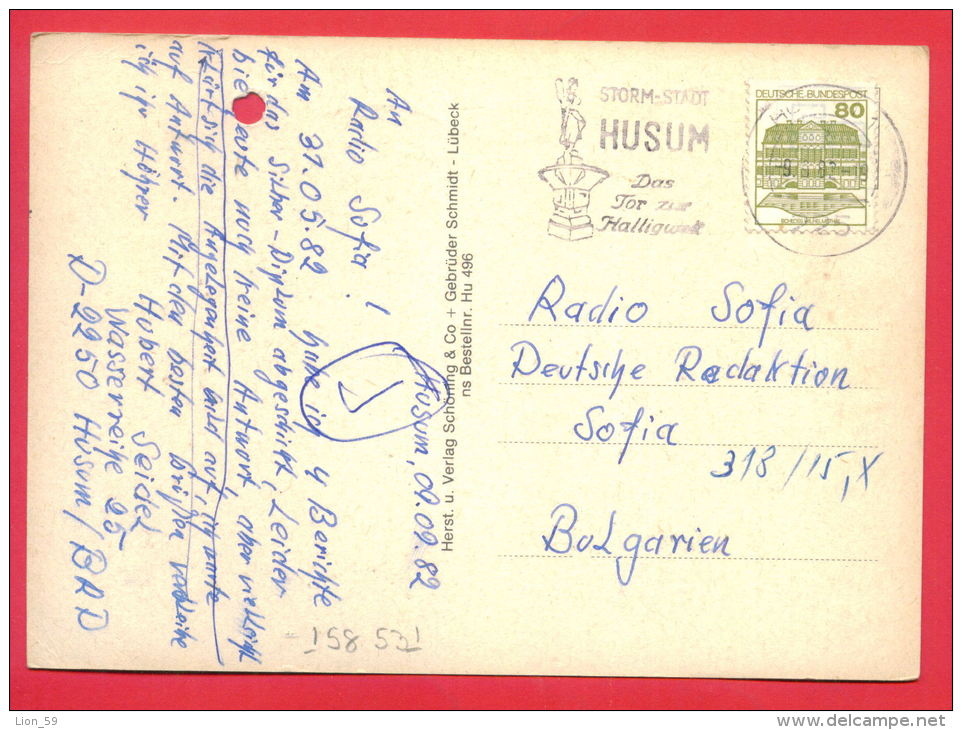 Husum, 09.09.82
An
Radio Sofia!
Am 31.05.82 habe ich 4 Berichte
für das Silber-Diplom abgeschickt, Leider
bis heute noch keine Antwort, aber vielleicht
klärt sich die Angelegenheit bald auf, ich warte
auf Antwort. Mit den besten Grüßen verbleibe
ich ihr Höhrer
Hubert Seidel
Wasserreihe 25
D-2250 Husum/BRD
Herst. u. Verlag Schöning & Co + Gebrüder Schmidt - Lübeck
ns Bestellnr. Hu 496
STORM-STADT
HUSUM
Das
Tor zur
Halligwelt
DEUTSCHE BUNDESPOST
80
SCHLOSS WILHELMSTHAL
Radio Sofia
Deutsche Redaktion
Sofia
318/15,X
Bulgarien
158 531
Lion_59
www.delcampe.net